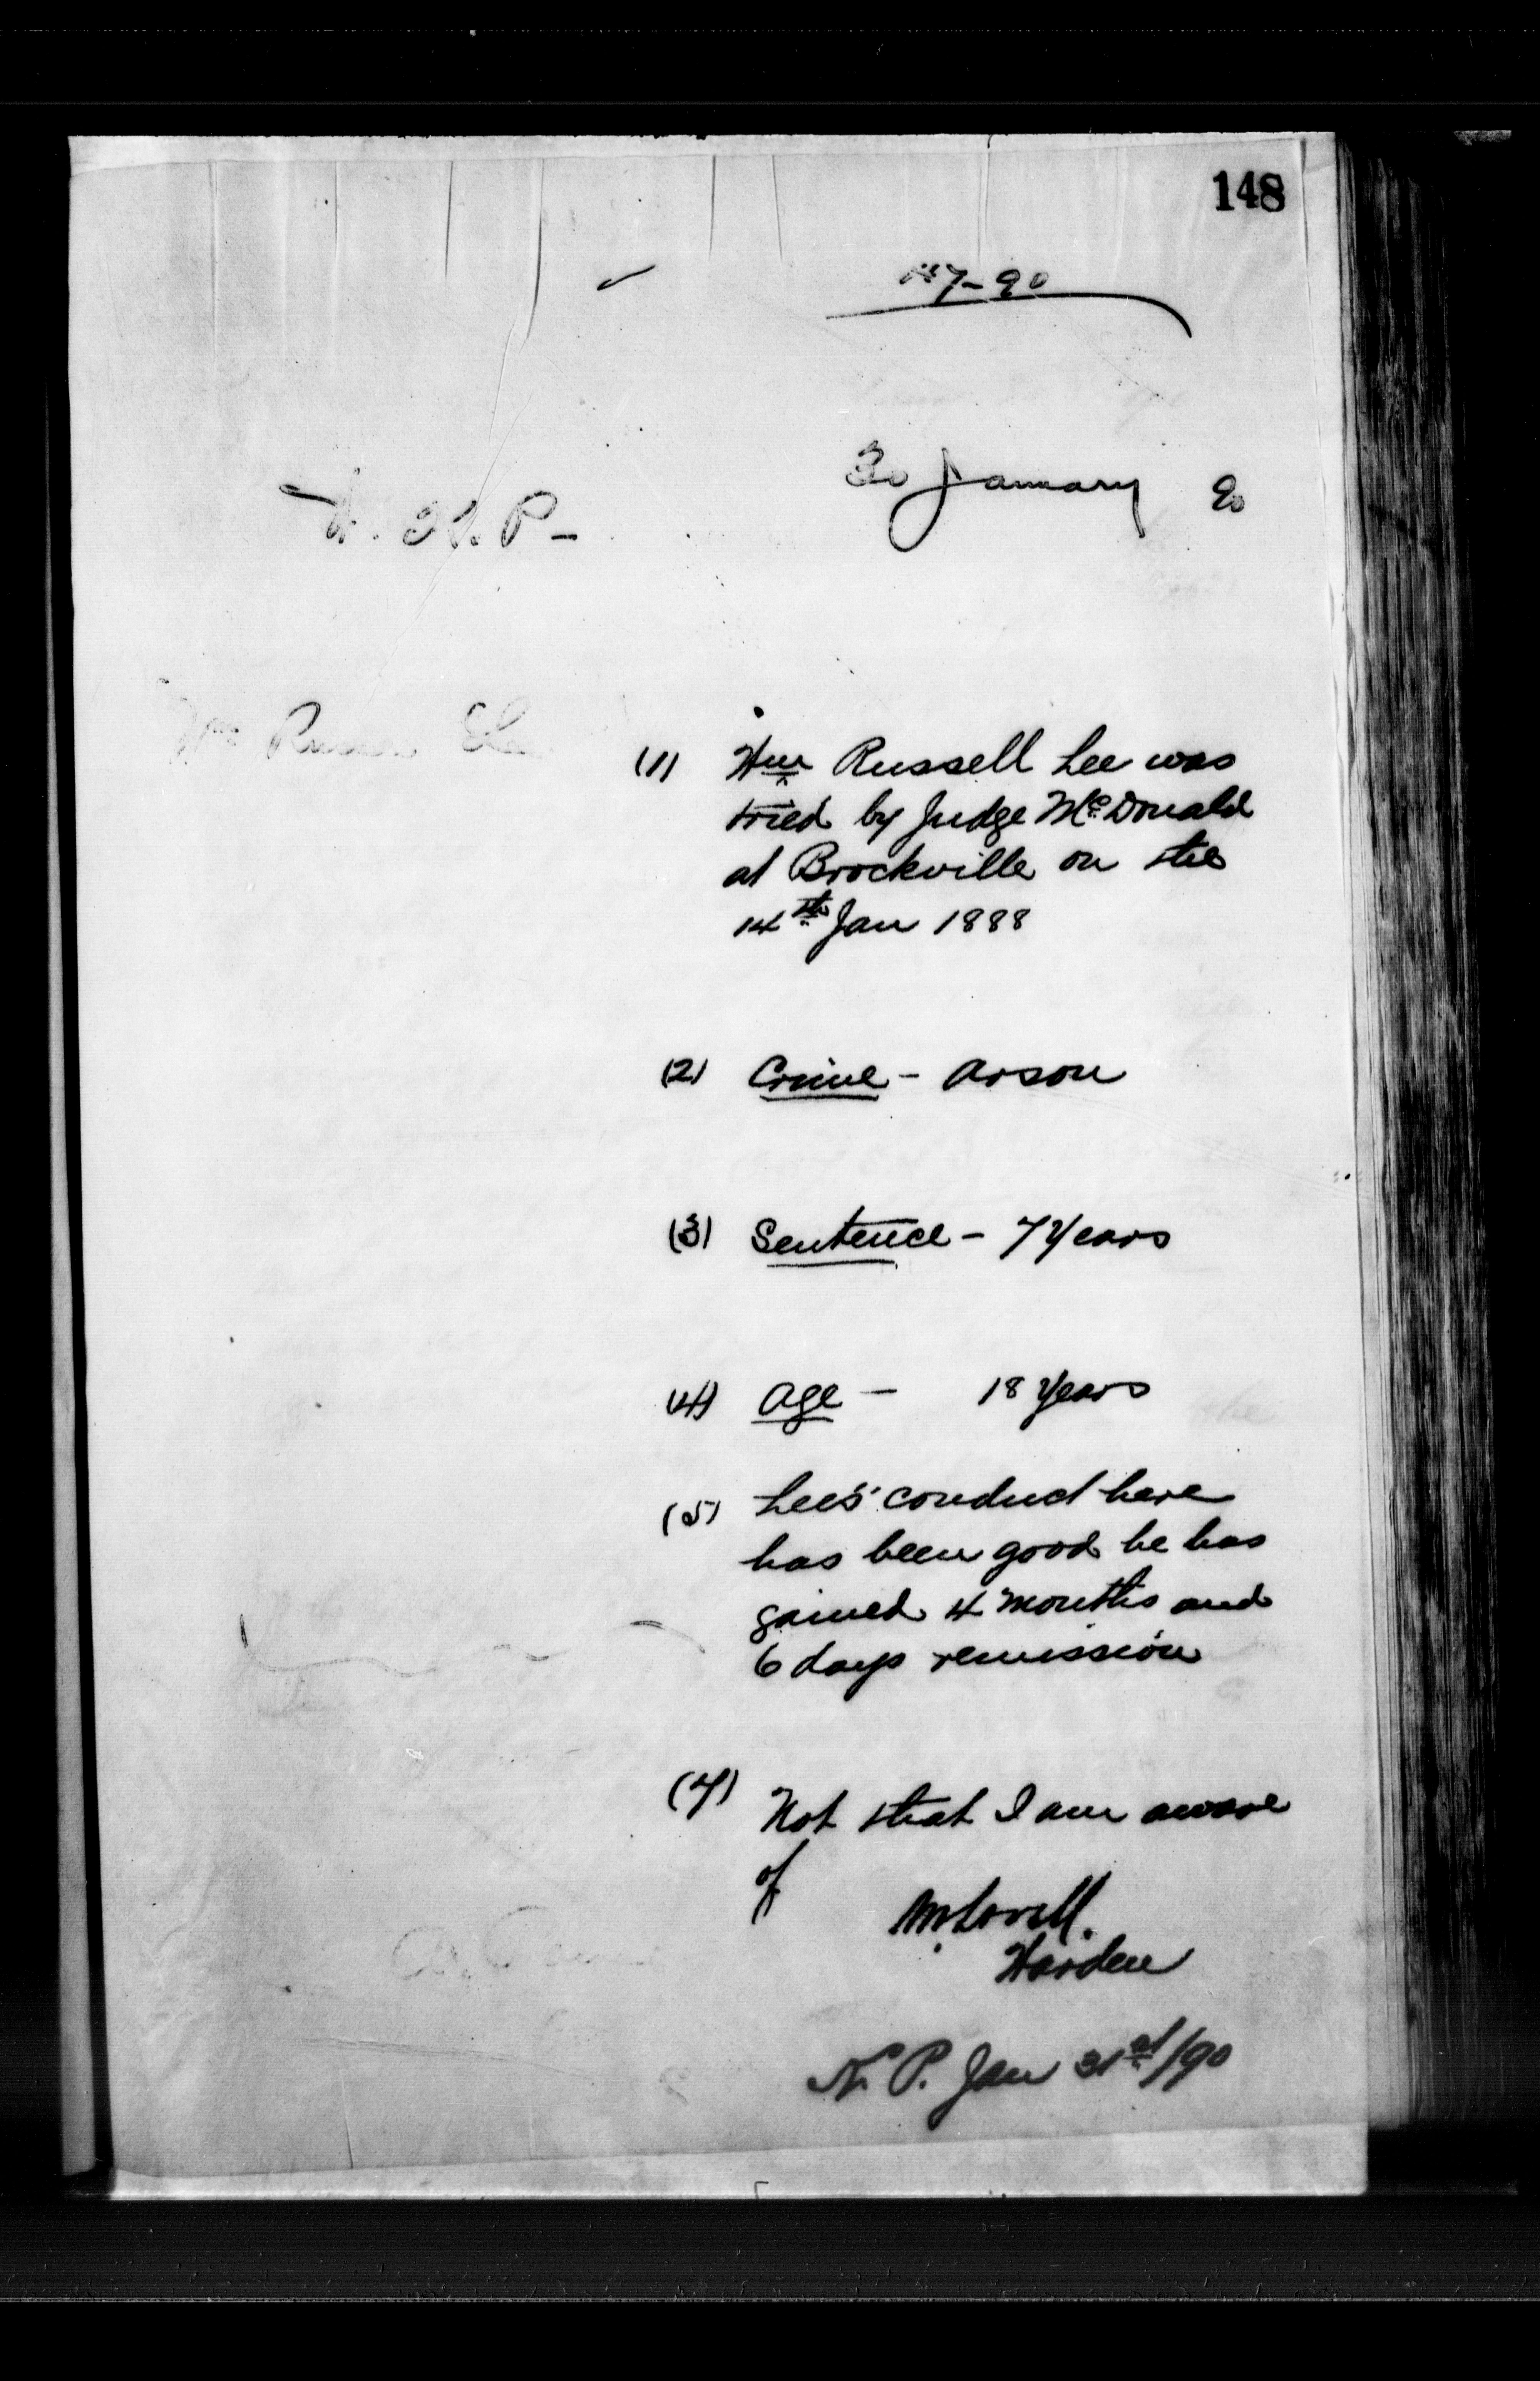 148
30 January 90
Wm Russell Lee was
(1) tried by Judge McDonald
at Brockville on the
14th Jan 1888
(2) Crime - Arson
(3) Sentence - 7 Years
(4) Age - 18 Years
(5) Lee's conduct here
has been good he has
gained 4 months and
6 days remission
(7) Not that I am aware
of
Warden
K. P. Jan 31st/90